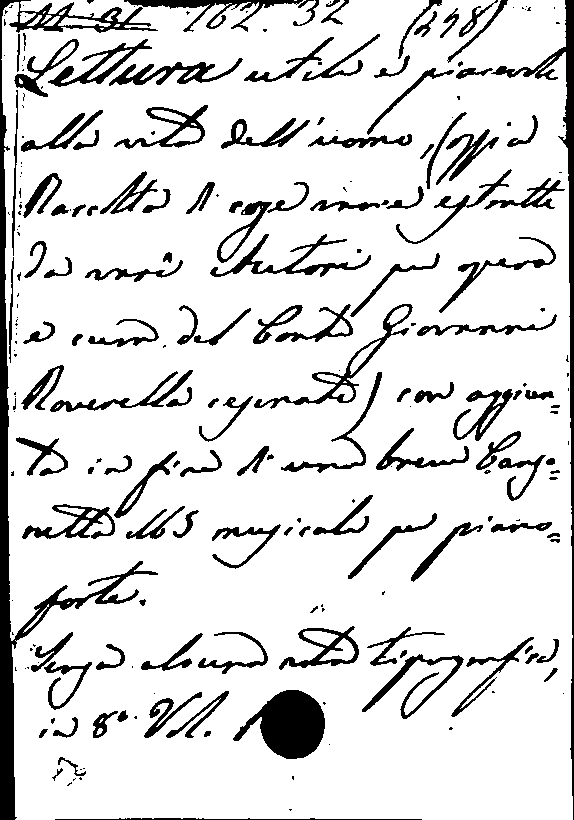 M 31 162. 32 (248)
Lettura utile e piacevole
alla vita dell'uomo, (ossia
Raccolta di cose varie estratte
da varî Autori per opera
e cura del Conte Giovanni
Roverella cesenate) con aggiun=
ta in fine di una breve Canzo=
netta MS musicale per piano=
forte.
Senza alcuna nota tipografica,
in 8º Vol. 1